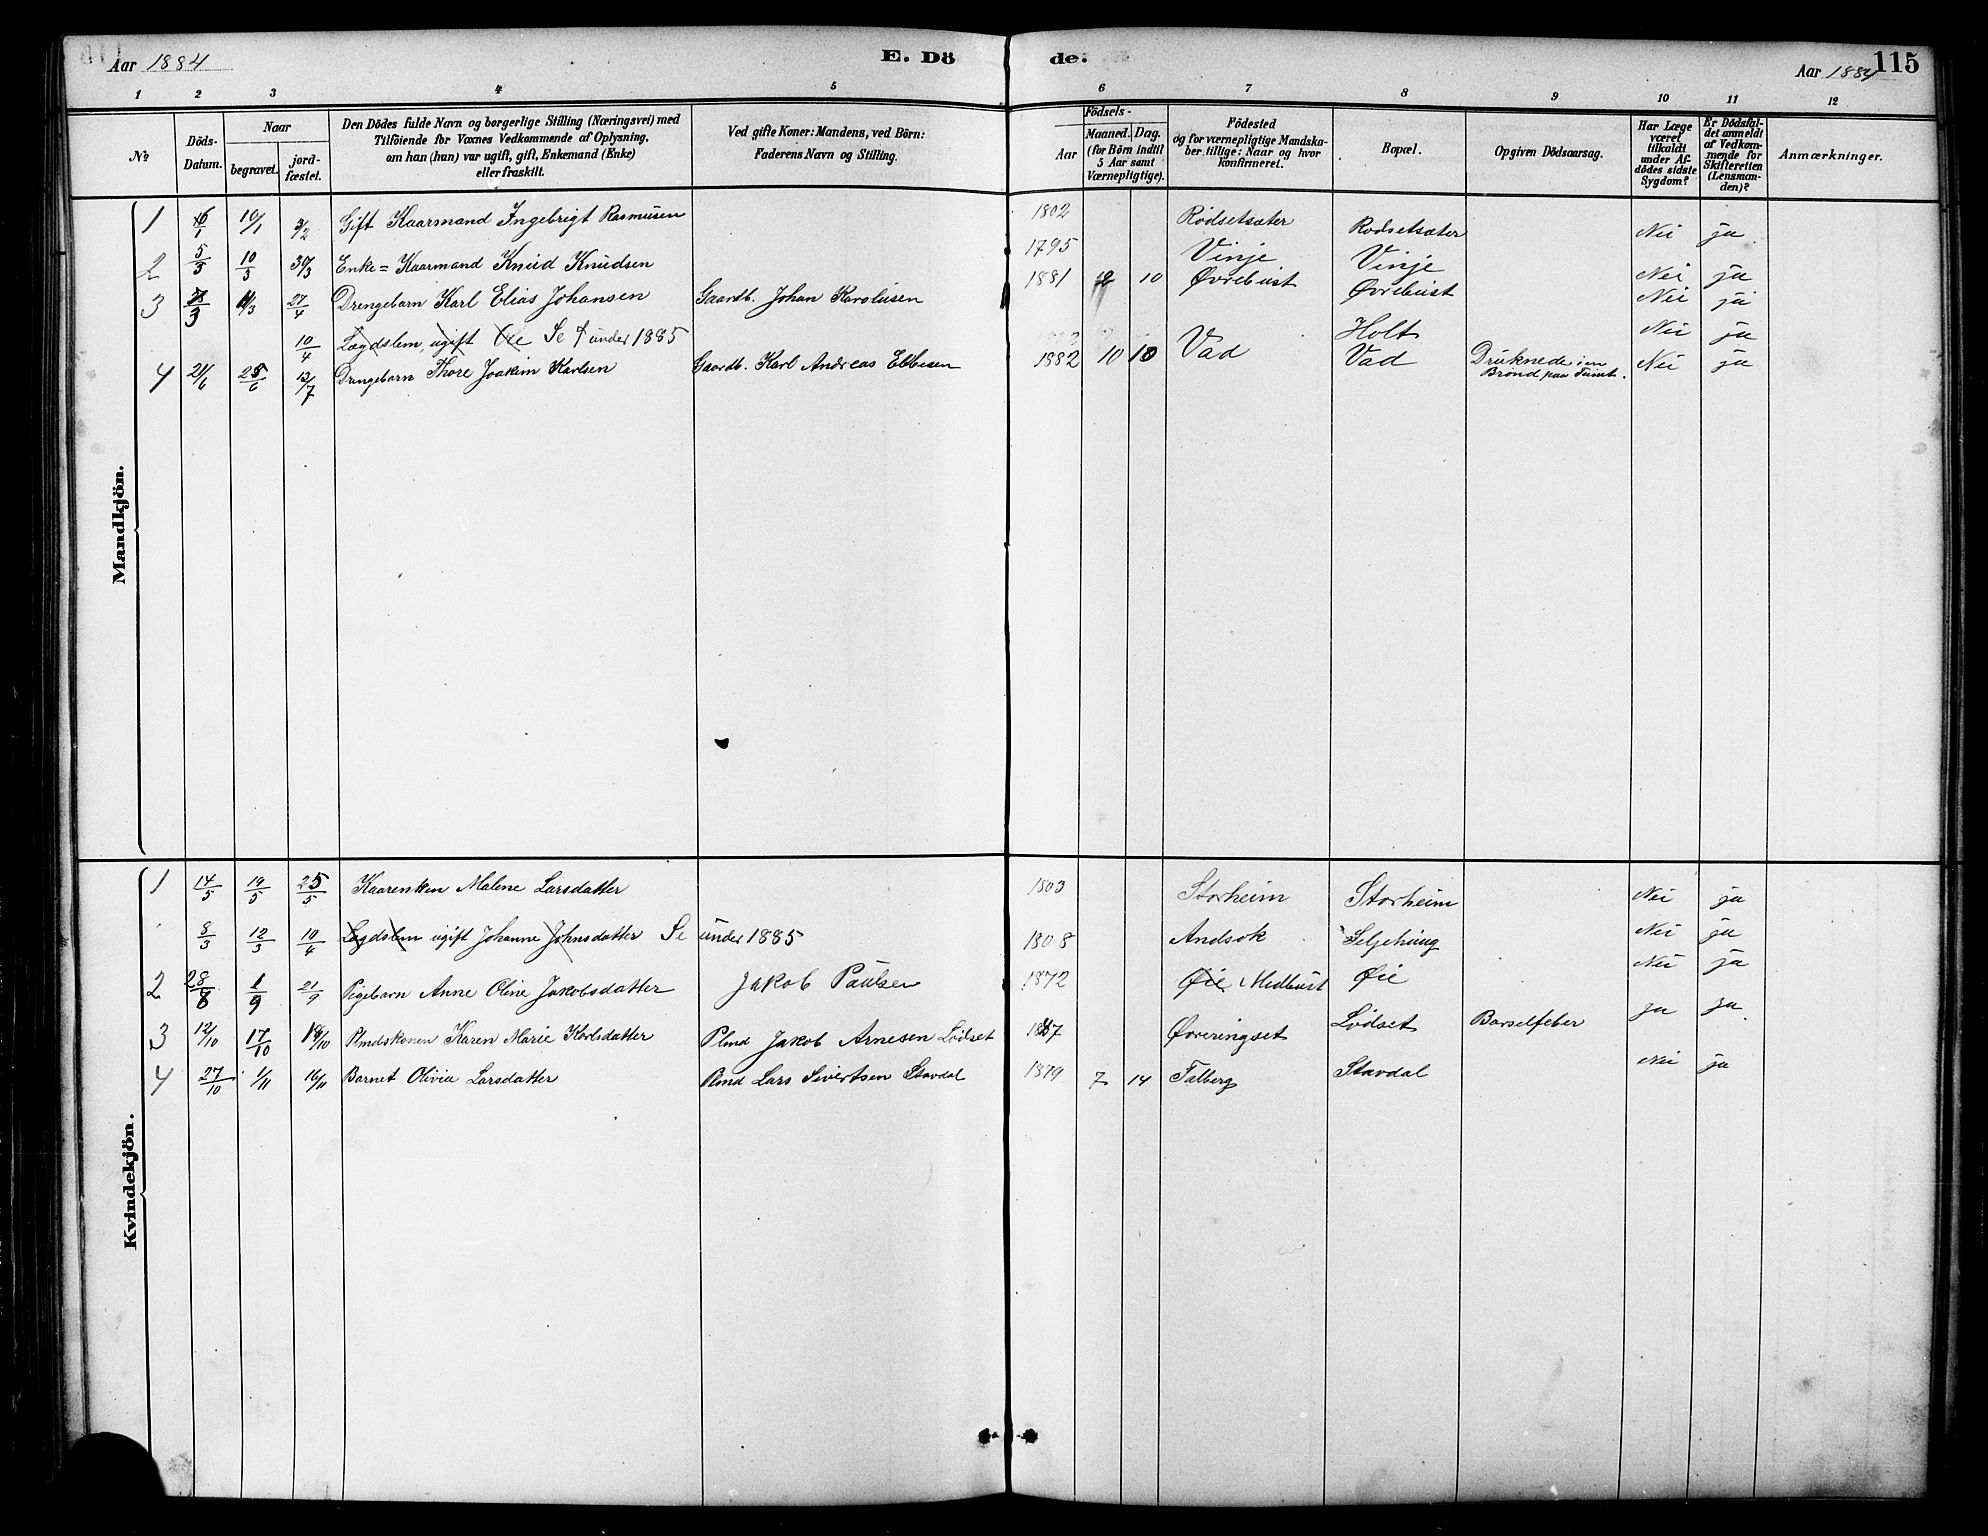 Aar 1884
E. Dö
de:
Aar 1884
115
1 2 3 4 5 6 7 8 9 10 11 12
No
Döds-Datum.
Naar
begravet.
jordfæstet.
Den Dödes fulde Navn og borgerlige Stilling (Næringsvei) med
Tilföiende for Voxnes Vedkommende af Oplysning,
om han (hun) var ugift, gift, Enkemand (Enke)
eller fraskilt.
Ved gifte Koner: Mandens, ved Börn:
Faderens Navn og Stilling.
Födsels-
Aar
Maaned. Dag.
(for Börn indtil
5 Aar samt
Værnepligtige).
Födested
og for værnepligtige Mandskaber
tillige: Naar og hvor
konfirmeret.
Bopæl.
Opgiven Dödsaarsag.
Har Læge
været
tilkaldt
under Afdödes
sidste
Sygdom?
Er Dödsfaldet
anmeldt
af Vedkommende
for
Skifteretten
(Lensmanden)?
Anmærkninger.
Mandkjön.
1 6/1 10/1 3/2 Gift Kaarmand Ingebrigt Rasmusen 1802 Rödsetsæter Rödsetsæter Nei ja
2 5/3 10/3 30/3 Enke= Kaarmand Knud Knudsen 1795 Vinje Vinje Nei ja
3 8/3 11/3 27/4 Drengebarn Karl Elias Johansen Gaardb. Johan Karolusen 1881 10 Øvrebust Øvrebust Nei ja
10/4 Lægdslem ugift Ole Se under 1885 Holt Nei ja
4 21/6 25/6 13/7 Drengebarn Thore Joakim Karlsen Gaardb. Karl Andreas Ebbesen 1882 10 10 Vad Vad Druknede i en Brönd paa Tunet. Nei ja
Kvindekjön.
1 14/5 19/5 25/5 Kaarenken Malene Larsdatter 1803 Storheim Storheim Nei ja
8/3 12/3 10/4 Lægdslem ugift Johanne Johnsdatter Se under 1885 1808 Andsok Seljehaug Nei ja
2 28/8 1/9 21/9 Pigebarn Anne Oline Jakobsdatter Jakob Paulsen 1872 Øie Midbust Øie Nei ja
3 12/10 17/10 19/10 Plmdskonen Karen Marie Karlsdatter Plmd Jakob Arnesen Lödset 1857 Øvreringset Lödset Barselfeber ja ja.
4 27/10 1/11 16/11 Barnet Olivia Larsdatter Plmd Lars Sivertsen Stavdal 1879 7 14 Talberg Stavdal Nei ja